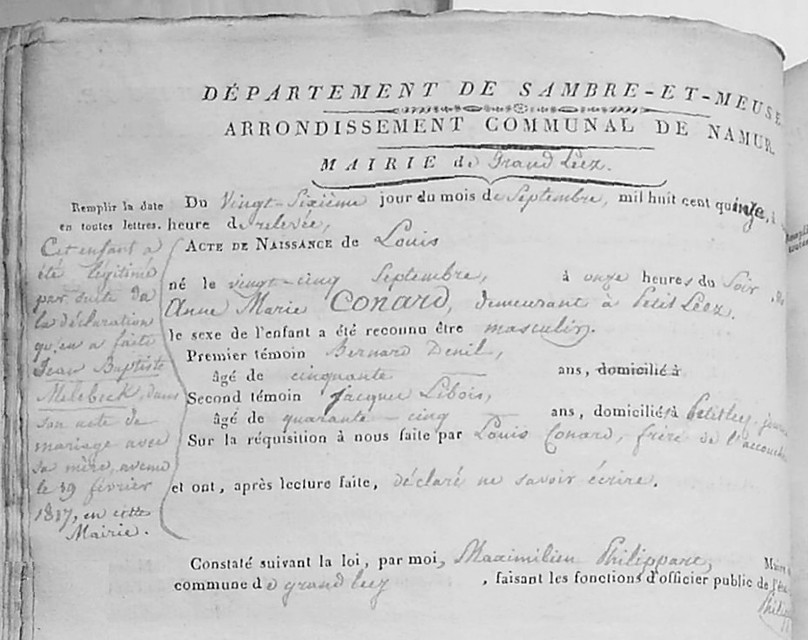 DÉPARTEMENT DE SAMBRE-ET-MEUSE
ARRONDISSEMENT COMMUNAL DE NAMUR.
MAIRIE de Grand Leez.
Remplir la date
en toutes lettres.
Du Vingt-Sixième jour du mois de Septembre, mil huit cent quinze, à
heure de relevée,
ACTE DE NAISSANCE de Louis
né le vingt-cinq Septembre, à onze heures du Soir
Anne Marie Conard, demeurant à Petit Leez.
le sexe de l'enfant a été reconnu être masculin.
Premier témoin Bernard Denil,
âgé de cinquante ans, domicilié à
Second témoin Jacques Libois,
âgé de quarante-cinq ans, domicilié à Petitleez
Sur la réquisition à nous faite par Louis Conard, frère de l'accouchée
et ont, après lecture faite, déclaré ne savoir écrire.
Constaté suivant la loi, par moi, Maximilien Philippart, Maire
commune de grand leez, faisant les fonctions d'officier public de
Cet enfant a
été légitimé
par suite de
la déclaration
qu'en a faite
Jean Baptiste
Melebeck, dans
son acte de
mariage avec
sa mère, avenu
le 19 février
1817, en cette
Mairie.